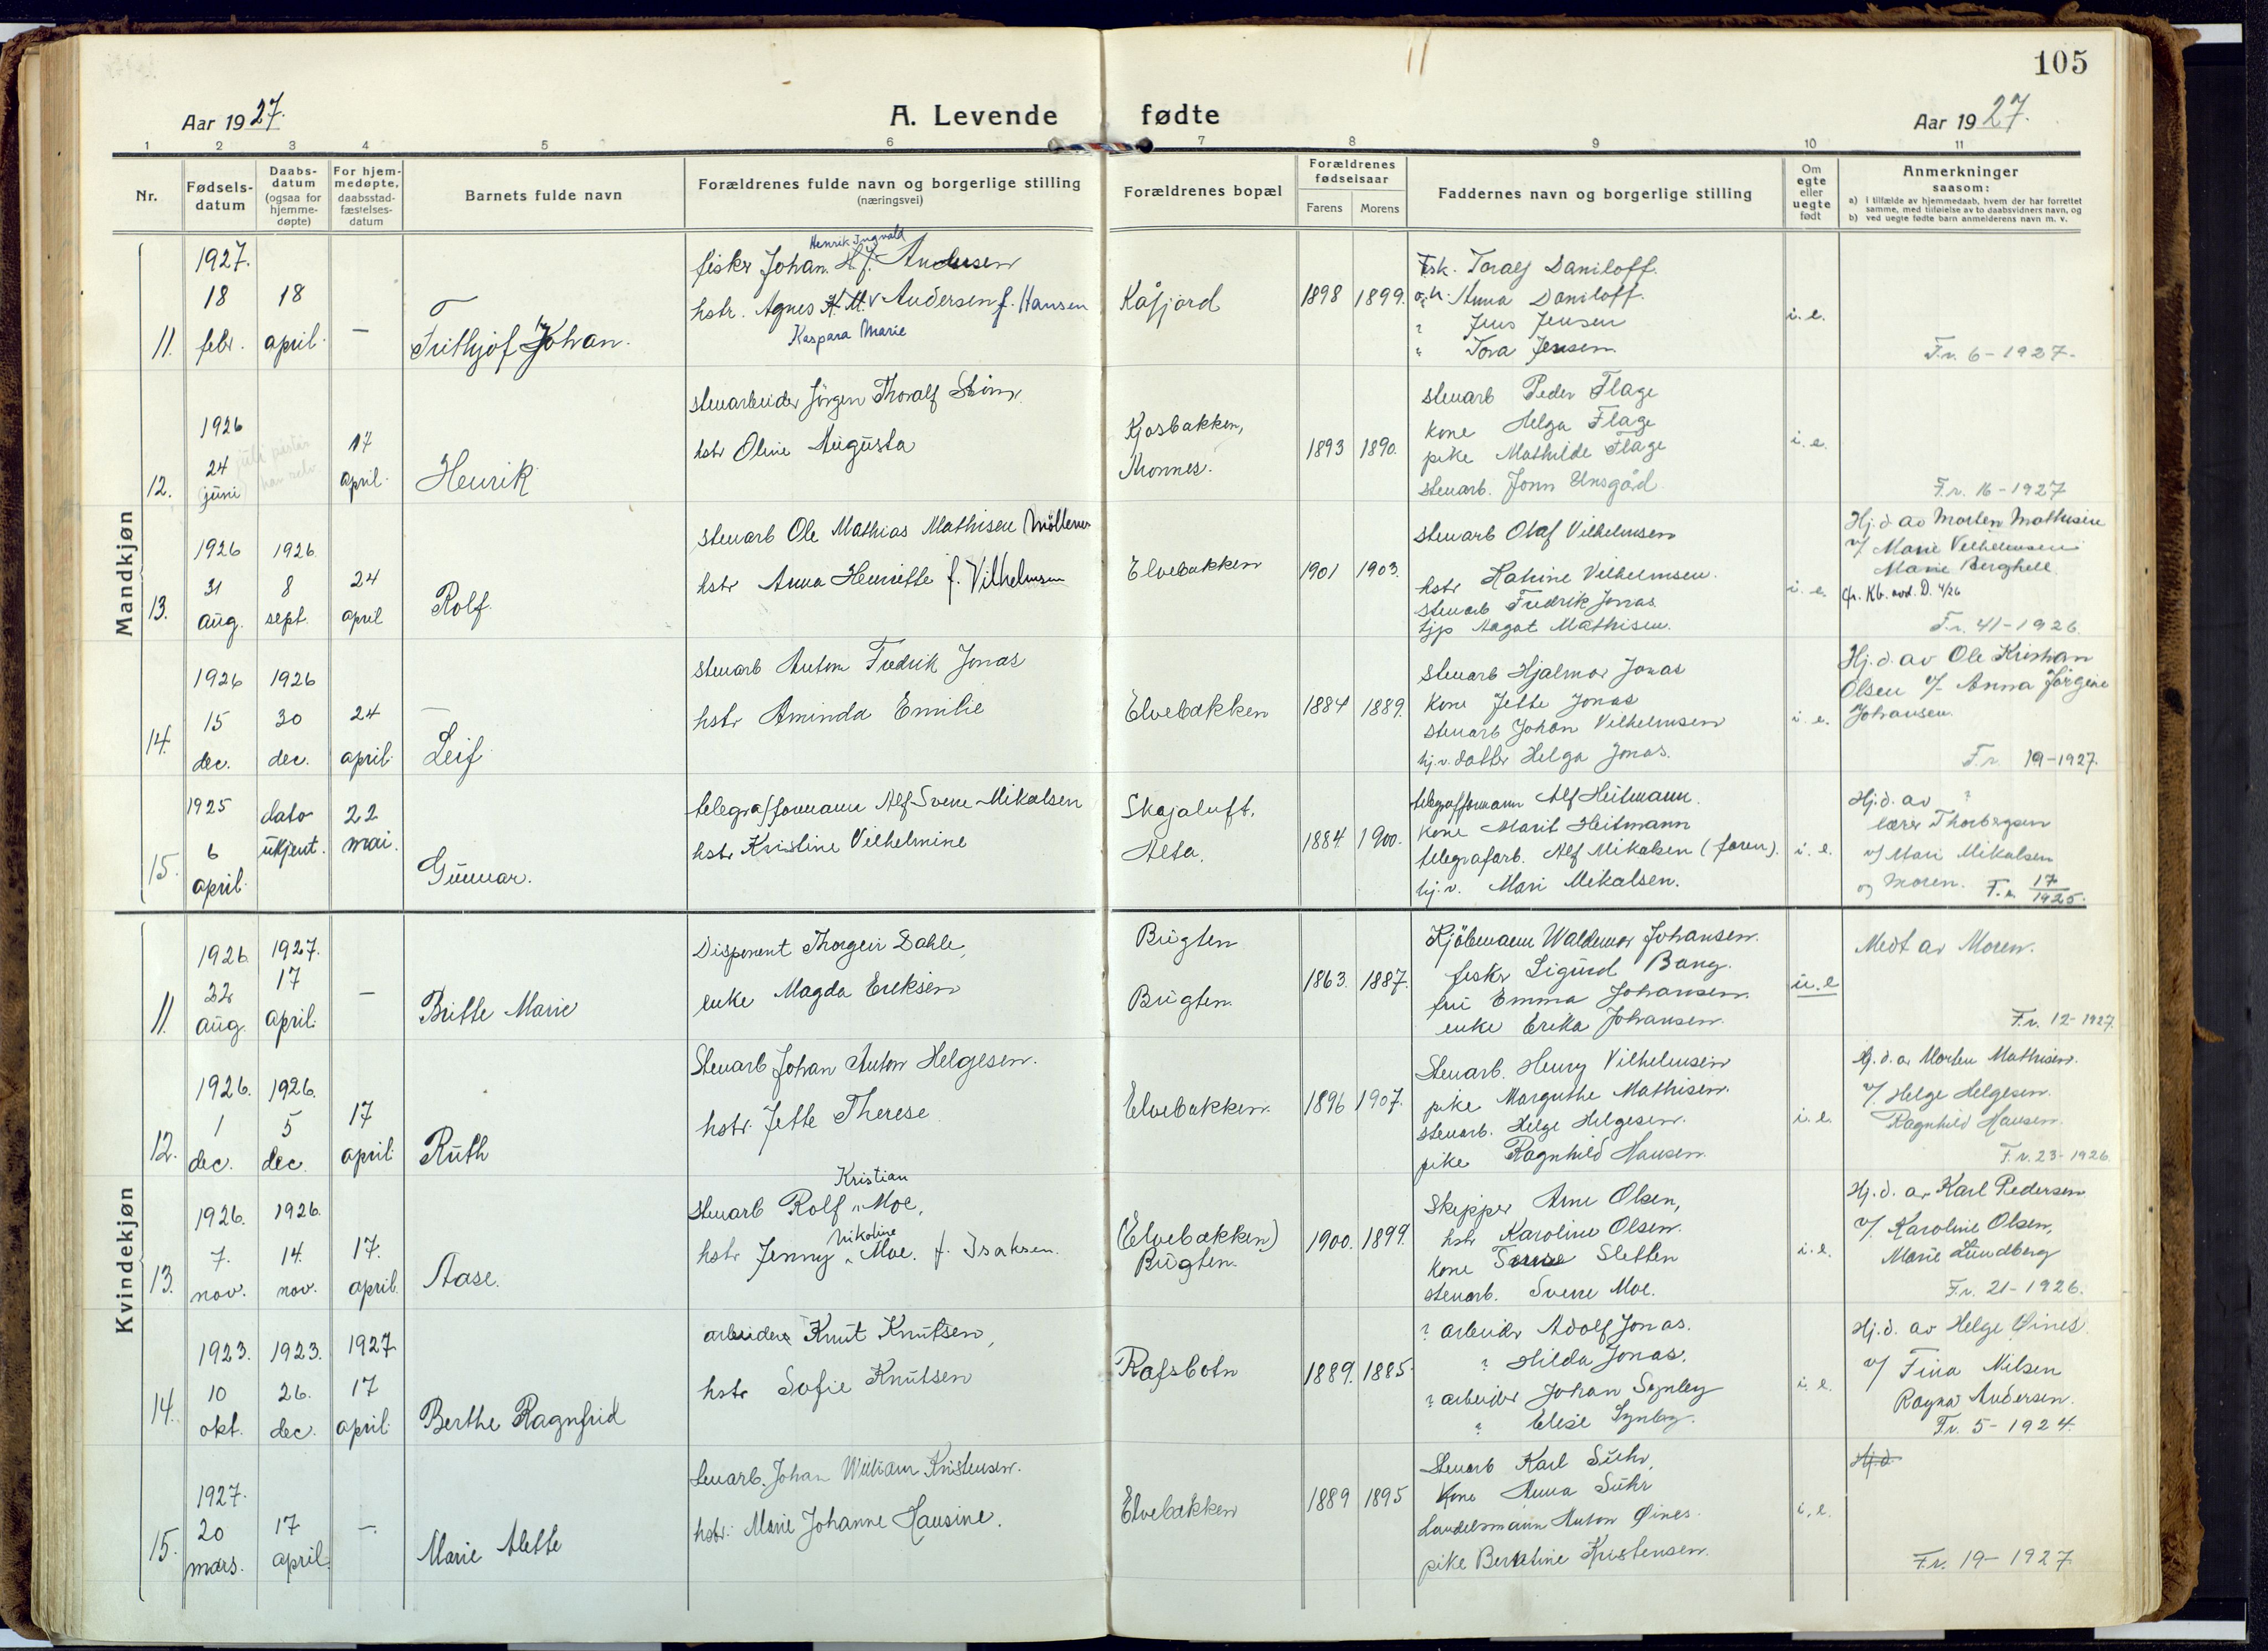 105
Aar 1927.
A. Levende fødte
Aar 1927.
1 2 3 4 5 6 7 8 9 10 11
Nr.
Fødselsdatum
Daabsdatum (ogsaa for hjemmedøpte)
For hjemmedøpte, daabsstadfæstelsesdatum
Barnets fulde navn
Forældrenes fulde navn og borgerlige stilling (næringsvei)
Forældrenes bopæl
Forældrenes fødselsaar
Farens Morens
Faddernes navn og borgerlige stilling
Om egte eller uegte født
Anmerkninger saasom:
a) I tilfælde av hjemmedaab, hvem der har forrettet samme, med tilføielse av to daabsvidners navn, og
b) ved uegte fødte barn anmelderens navn m. v.
Mandkjøn
11. 1927. 18 febr. 18 april. —
Trithjof Johan.
Henrik Ingvald
fisker Johan H.J. Andersen
hstr. Agnes K. M. Andersen f. Hansen
Kaspara Marie
Kåfjord
1898 1899.
Fisk. Toralf Daniloff.
Anna Daniloff.
" Jens Jensen
" Tora Jensen.
i. e.
F.r. 6-1927.
12. 1926 24 juni
17 april.
Henrik
stenarbeider Jörgen Thoralf
hstr Oline Augusta
Kjosbakken,
Thomnes.
1893 1890.
stenarb Peder Flage
kone Helga Flage
pike Mathilde Flage
stenarb. Jonn Unsgård
i. e.
F.r. 16-1927
13. 1926 31 aug. 1926. 8 sept. 24 april
Rolf.
stenarb Ole Mathias Mathisen Möllenes
hstr Anna Henriette f. Vilhelmsen
Elvebakken
1901 1903.
stenarb Olaf Vilhelmsen
hstr Katrine Vilhelmsen.
stenarb Fredrik Jonas.
tjp Aagot Mathisen.
i. e.
Hj. d. av Morten Mathisen
v/ Marie Vilhelmsen
Marie Berghell
cfr. Kb. avd. D. 4/26
F.r. 41-1926.
14. 1926 15 dec. 1926 30 dec. 24 april.
Leif
stenarb Anton Fredrik Jonas
hstr Aminda Emilie
Elvebakken
1884 1889.
stenarb Hjalmar Jonas
kone Jette Jonas
stenarb Johan Vilhelmsen
hj.v. datter Helga Jonas.
i. e.
Hj. d. av Ole Kristian
Olsen v/ Anna Jörgine
Johansen.
F.r. 19-1927.
15. 1925 6 april. dato ukjent. 22 mai.
Gunnar.
telegrafformann Alf Svenn Mikalsen
hstr Kristine Vilhelmine
Skajaluft,
Alta.
1884 1900.
telegrafformann Alf Heitmann.
kone Marit Heitmann
telegrafarb. Alf Mikalsen (faren).
hj.v. Mari Mikalsen.
i. e.
Hj. d. av ?
lærer Thorbergsen
v/ Mari Mikalsen
og moren. F.r. 17/1925.
Kvindekjøn
11. 1926 22 aug. 1927. 17 april. —
Britte Marie
Disponent Thorgeir Dahle,
enke Magda Eriksen
Bugten
Bugten.
1863. 1887.
Kjöbmann Waldemar Johansen.
fisker Sigurd Bang.
fru Emma Johansen.
enke Erika Johansen.
u. e
Medt av Moren.
F.r. 12-1927.
12. 1926. 1 dec. 1926. 5 dec. 17 april.
Ruth
Stenarb Johan Anton Helgesen.
hstr. Jette Therese
Elvebakken.
1896 1907.
Stenarb. Henry Vilhelmsen
pike Margrethe Mathisen.
stenarb. Helge Helgesen.
pike Ragnhild Hansen.
i. e.
Hj. d. av Morten Mathisen.
v/ Helge Helgesen.
Ragnhild Hansen.
F.r. 23-1926.
13. 1926. 7. nov. 1926. 14. nov. 17. april.
Aase.
Kristian
stenarb Rolf " Moe,
Nikoline
hstr Jenny " Moe. f. Isaksen.
(Elvebakken)
Bugten.
1900. 1899.
Skipper Arne Olsen,
hstr Karoline Olsen.
kone Sletten
stenarb. Sverre Moe.
i. e.
Hj. d. av Karl Pedersen
v/ Karoline Olsen,
Marie Lundberg
F.r. 21-1926.
14. 1923. 10 okt. 1923. 26. dec. 1927 17 april.
Berthe Ragnfrid
arbeider Knut Knutsen,
hstr Sofie Knutsen
Rafsbotn
1889. 1885.
? arbeider Adolf Jonas.
? Hilda Jonas.
? arbeider Johan Synley
? Elise Synley.
i. e.
Hj. d. av Helge Øines.
v/ Fina Nilsen
Ragna Andersen.
F.r. 5-1924.
15. 1927. 20 mars. 17 april. —
Marie Alette
stenarb. Johan William Kristensen.
hstr. Marie Johanne Hansine.
Elvebakken
1889 1895
Stenarb Karl Suhr,
kone Anna Suhr
Landelsmann Anton Øines.
pike Berntine Kristensen.
i. e.
Hj. d.
F.r. 19-1927